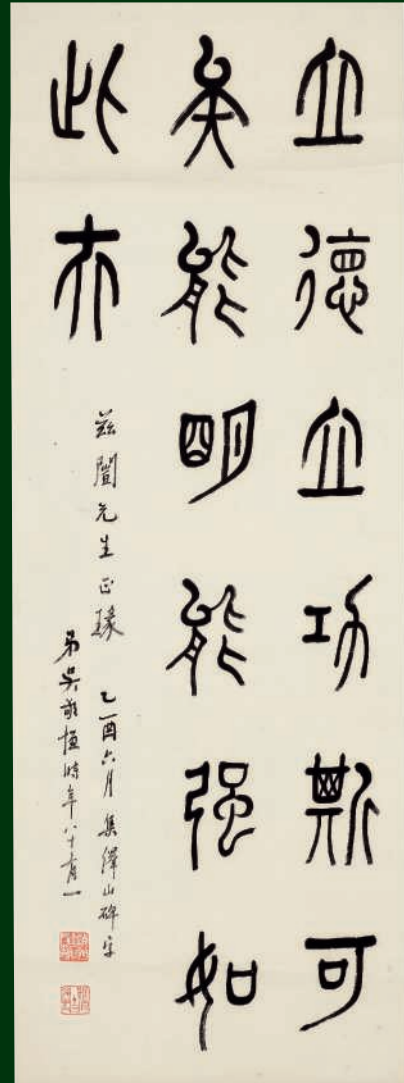 立德立功斯可
矣能明能强如
此夫
茲先生正瑑
乙酉六月集繹山碑字
弟吳敬恆時年八十有一